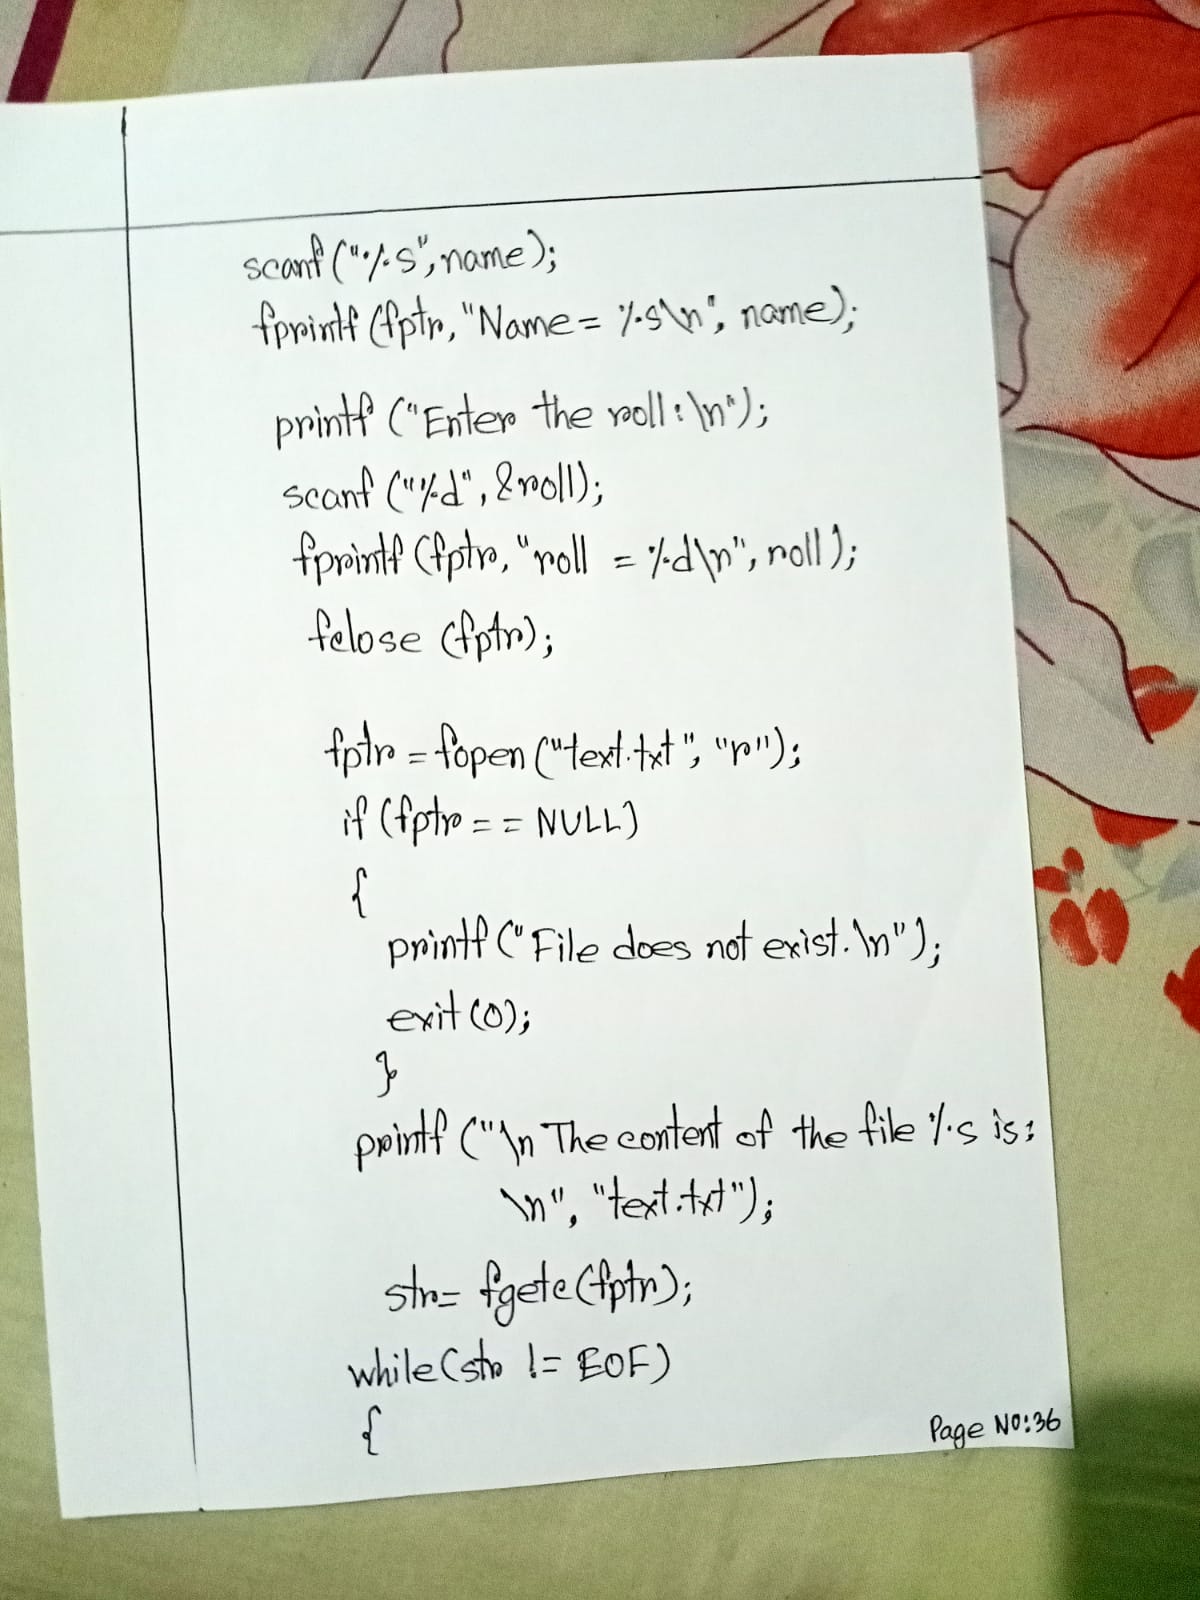 scanf ("%s", name);
fprintf (fptr, "Name = %s\n", name);
printf ("Enter the roll : \n");
scanf ("%d", &roll);
fprintf (fptr, "roll = %d\n", roll);
fclose (fptr);
fptr = fopen ("text.txt", "r");
if (fptr == NULL)
{
printf ("File does not exist. \n");
exit (0);
}
printf ("\n The content of the file %s is :
\n", "text.txt");
str = fgetc (fptr);
while (str != EOF)
{
Page No: 36